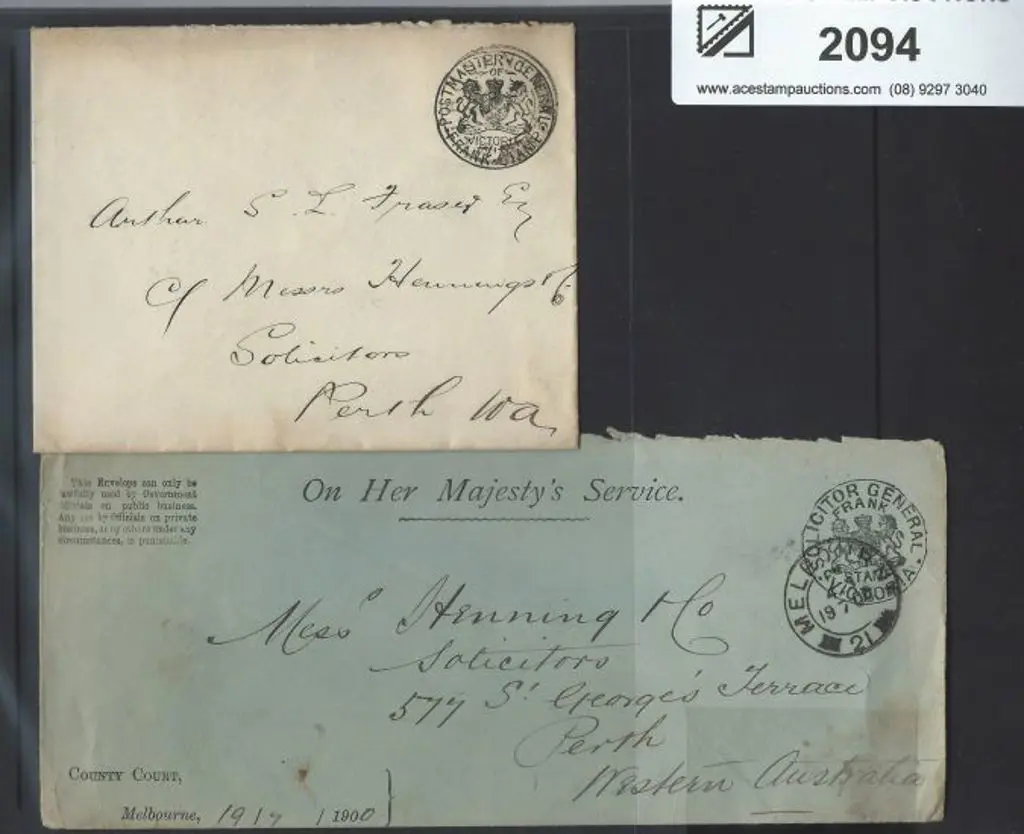 2094
www.acestampauctions.com (08) 9297 3040
POSTMASTER GENERAL
OF
VICTORIA
FRANK STAMP
Arthur S. L. Fraser Esq
c/ Messrs Hennings & Co
Solicitors
Perth Wa
This Envelope can only be
lawfully used by Government
Officials on public business.
Any use by Officials on private
business, or by others under any
circumstances, is punishable.
On Her Majesty's Service.
SOLICITOR GENERAL
FRANK
STAMP
VICTORIA
MELB
19 7
21
Messrs Henning & Co
Solicitors
577 St George's Terrace
Perth
Western Australia
COUNTY COURT,
Melbourne, 19 / 7 / 1900